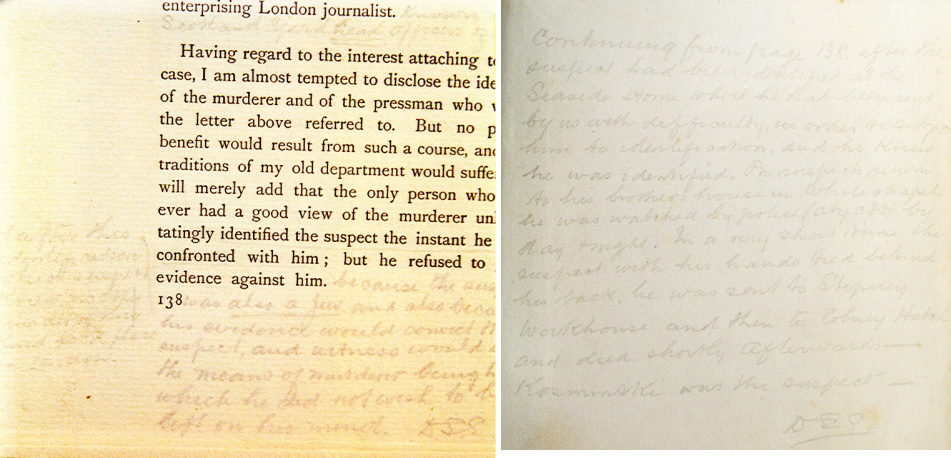 enterprising London journalist. Known
Scotland Yard head officers of
Having regard to the interest attaching to
case, I am almost tempted to disclose the ide
of the murderer and of the pressman who
the letter above referred to. But no p
benefit would result from such a course, and
traditions of my old department would suffe
will merely add that the only person who
ever had a good view of the murderer un
tatingly identified the suspect the instant he
confronted with him; but he refused to
evidence against him.
because the sus
138
was also a Jew and also beca
his evidence would convict the
suspect, and witness would
the means of murderer being h
which he did not wish to b
left on his mind. DSS
after this
identification
suspect
London.
Continuing from page 138 after the
suspect had been identified at the
Seaside Home where he had been sent
by us with difficulty, in order to subje
him to identification, and he knew
he was identified. On suspects return
to his brothers house in Whitechapel
he was watched by police (City CID) by
day & night. In a very short time the
suspect with his hands tied behind
his back, he was sent to Stepney
Workhouse and then to Colney Hatch
and died shortly afterwards —
Kosminski was the suspect —
DSS